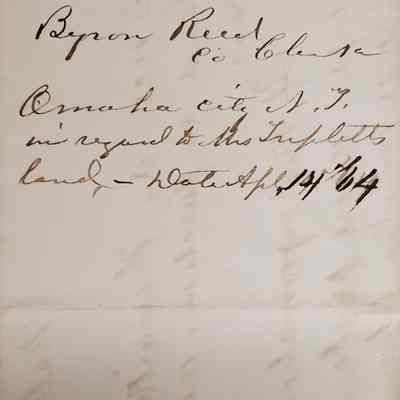 Byron Reed
Co Clerk
Omaha city N. T.
in regard to Mrs Tripletts
land, – Date Apl 14th 64